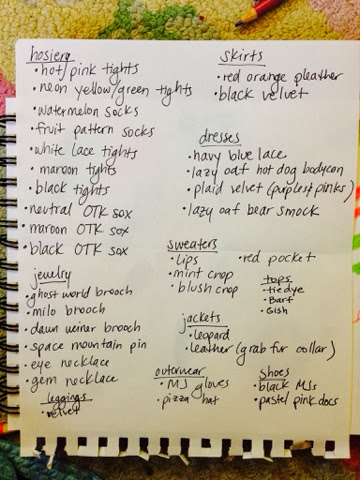 hosiery
• hot/pink tights
• neon yellow/green tights
• watermelon socks
• fruit pattern socks
• white lace tights
• maroon tights
• black tights
• neutral OTK sox
• maroon OTK sox
• black OTK sox
jewelry
• ghost world brooch
• milo brooch
• dawn weiner brooch
• space mountain pin
• eye necklace
• gem necklace
leggings
• velvet
skirts
• red orange pleather
• black velvet
dresses
• navy blue lace
• lazy oaf hot dog bodycon
• plaid velvet (purples + pinks)
• lazy oaf bear smock
sweaters
• Lips
• mint crop
• blush crop
• red pocket
tops
• tie dye
• Barf
• Gish
jackets
• leopard
• leather (grab fur collar)
outerwear
• MJ gloves
• pizza hat
shoes
• black MJs
• pastel pink docs